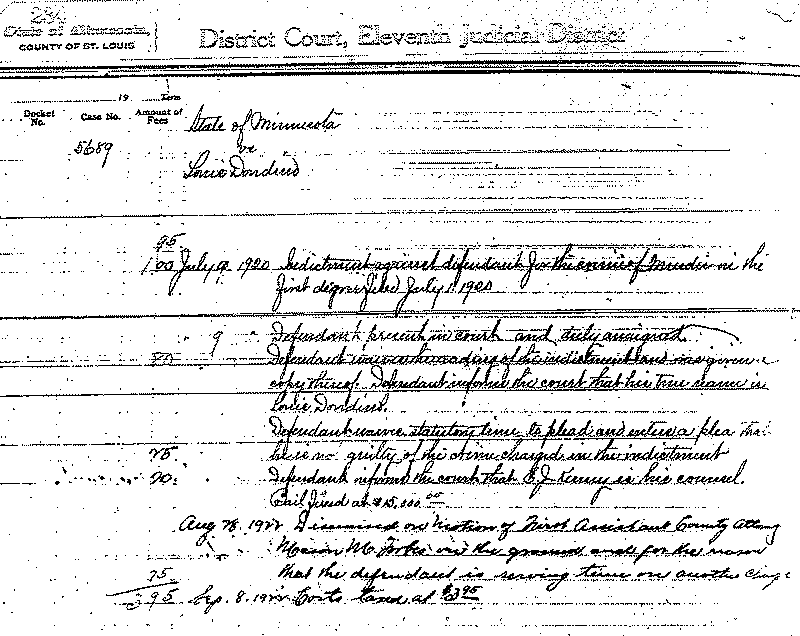 State of Minnesota,
COUNTY OF ST. LOUIS
District Court, Eleventh Judicial District
19 Term
Docket No. Case No. Amount of Fees
State of Minnesota
5689 vs
Louie Dondino
95
1 00 July 9 1920 Indictment against defendant for the crime of Murder in the
first degree filed July 1 1920
9 " Defendant present in court and duly arraigned
80 Defendant waives the reading of the indictment and was given a
copy thereof. Defendant informs the court that his true name is
Louie Dondino.
Defendant waives statutory time to plead and enters a plea that
25 he is not guilty of the crime charged in the indictment
20 Defendant informs the court that E.J. Kenny is his counsel.
Bail fixed at $15,000.00
Aug 28, 1922 Dismissed on Motion of First Assistant County Attorney
Mason M. Forbes on the ground and for the reason
75 that the defendant is serving time on another charge
3 95 Sep. 8. 1922 Costs taxed at $3.95